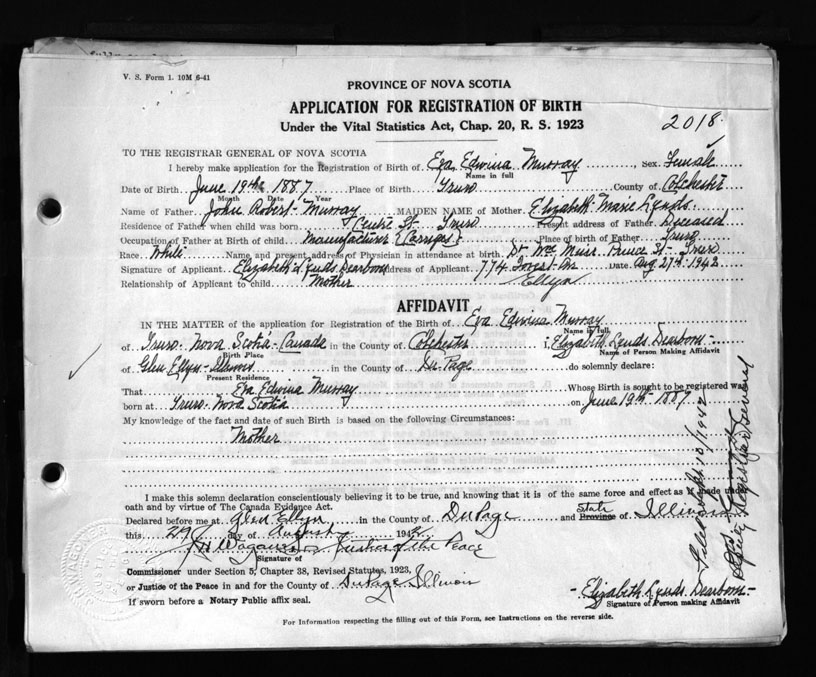 V. S. Form 1. 10M 6-41
PROVINCE OF NOVA SCOTIA
APPLICATION FOR REGISTRATION OF BIRTH
Under the Vital Statistics Act, Chap. 20, R. S. 1923
2018
TO THE REGISTRAR GENERAL OF NOVA SCOTIA
I hereby make application for the Registration of Birth of Eva Edwina Murray Sex Female
Name in full
Date of Birth June 19th 1887 Place of Birth Truro County of Colchester
Month Date Year
Name of Father John Robert Murray MAIDEN NAME of Mother Elizabeth Marie
Residence of Father when child was born Centre St. Truro Present address of Father Deceased
Occupation of Father at Birth of child Manufacturer (Carriages) Place of birth of Father Truro
Race White Name and present address of Physician in attendance at birth Dr. Muir Prince St. Truro
Signature of Applicant Elizabeth Dearborn Address of Applicant 774 Forest Av. Date Aug 27th 1942
Relationship of Applicant to child Mother Ellyn
AFFIDAVIT
IN THE MATTER of the application for Registration of the Birth of Eva Edwina Murray
Name in full
of Truro Nova Scotia Canada in the County of Colchester I, Elizabeth Dearborn
Birth Place Name of Person Making Affidavit
of Glen Ellyn Illinois in the County of Du Page do solemnly declare:
Present Residence
That Eva Edwina Murray Whose Birth is sought to be registered was
born at Truro Nova Scotia on June 19th 1887
My knowledge of the fact and date of such Birth is based on the following Circumstances:
Mother
I make this solemn declaration conscientiously believing it to be true, and knowing that it is of the same force and effect as if made under
oath and by virtue of The Canada Evidence Act.
Declared before me at Glen Ellyn in the County of DuPage and Province of State Illinois
this 29 day of August 1942
Justice of the Peace
Signature of
Commissioner under Section 5, Chapter 38, Revised Statutes, 1923,
or Justice of the Peace in and for the County of DuPage Illinois
If sworn before a Notary Public affix seal.
Elizabeth Dearborn
Signature of Person making Affidavit
For Information respecting the filling out of this Form, see Instructions on the reverse side.
Filed Sept 10/1942